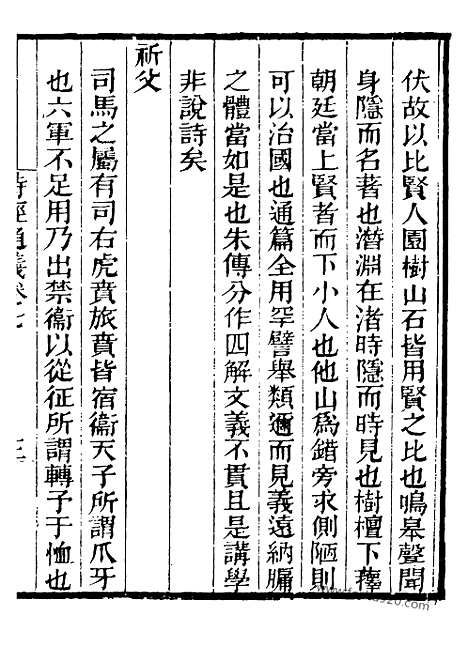 伏故以比賢人園樹山石皆用賢之比也鳴皋聲聞
身隱而名著也潛淵在渚時隱而時見也樹檀下蘀
朝廷當上賢者而下小人也他山為錯旁求側陋則
可以治國也通篇全用罕譬舉類邇而見義遠納牖
之體當如是也朱傳分作四解文義不貫且是講學
非說詩矣
祈父
司馬之屬有司右虎賁旅賁皆宿衞天子所謂爪牙
也六軍不足用乃出禁衞以從征所謂轉予于恤也
詩經通義卷七